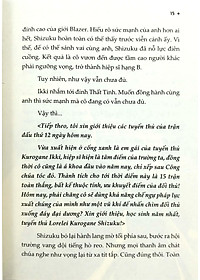 15
đỉnh cao của giới Blazer. Hiểu rõ sức mạnh của anh hơn ai
hết, Shizuku hoàn toàn có thể thấy trước viễn cảnh ấy. Vì
thế, để có thể sánh vai cùng anh, Shizuku đã nỗ lực điên
cuồng. Kết quả là cô vươn đến được tầm cao người khác
phải ngưỡng vọng, trở thành hiệp sĩ hạng B.
Tuy nhiên, như vậy vẫn chưa đủ.
Ikki nhắm tới đỉnh Thất Tinh. Muốn đồng hành cùng
anh thì sức mạnh mà cô có đang là chưa đủ.
Vậy thì...
<Tiếp theo, tôi xin giới thiệu các tuyển thủ của trận
đấu thứ 12 ngày hôm nay.
Vừa xuất hiện ở cổng xanh là em gái của tuyển thủ
Kurogane Ikki, hiệp sĩ hiện là tâm điểm của trường ta, đồng
thời cũng là á khoa đầu vào năm nay, chỉ xếp sau Công
chúa tóc đỏ. Thành tích cho tới thời điểm này là 15 trận
toàn thắng, bất kể thuộc tính, ưu khuyết điểm của đối thủ!
Hôm nay, phải chăng cô sẽ dùng khả năng chế ngự pháp lực
xuất chúng của mình như một vũ khí để nhấn chìm đối thủ
xuống đáy đại dương? Xin giới thiệu, học sinh năm nhất,
tuyển thủ Lorelei Kurogane Shizuku!>
Shizuku bỏ lại hành lang mờ tối phía sau, bước ra từ
hội trường vang dội tiếng hò reo. Nhưng mọi thanh âm chát
chúa nghe như vọng lại từ xa tít tắp. Cũng đúng thôi. Toàn